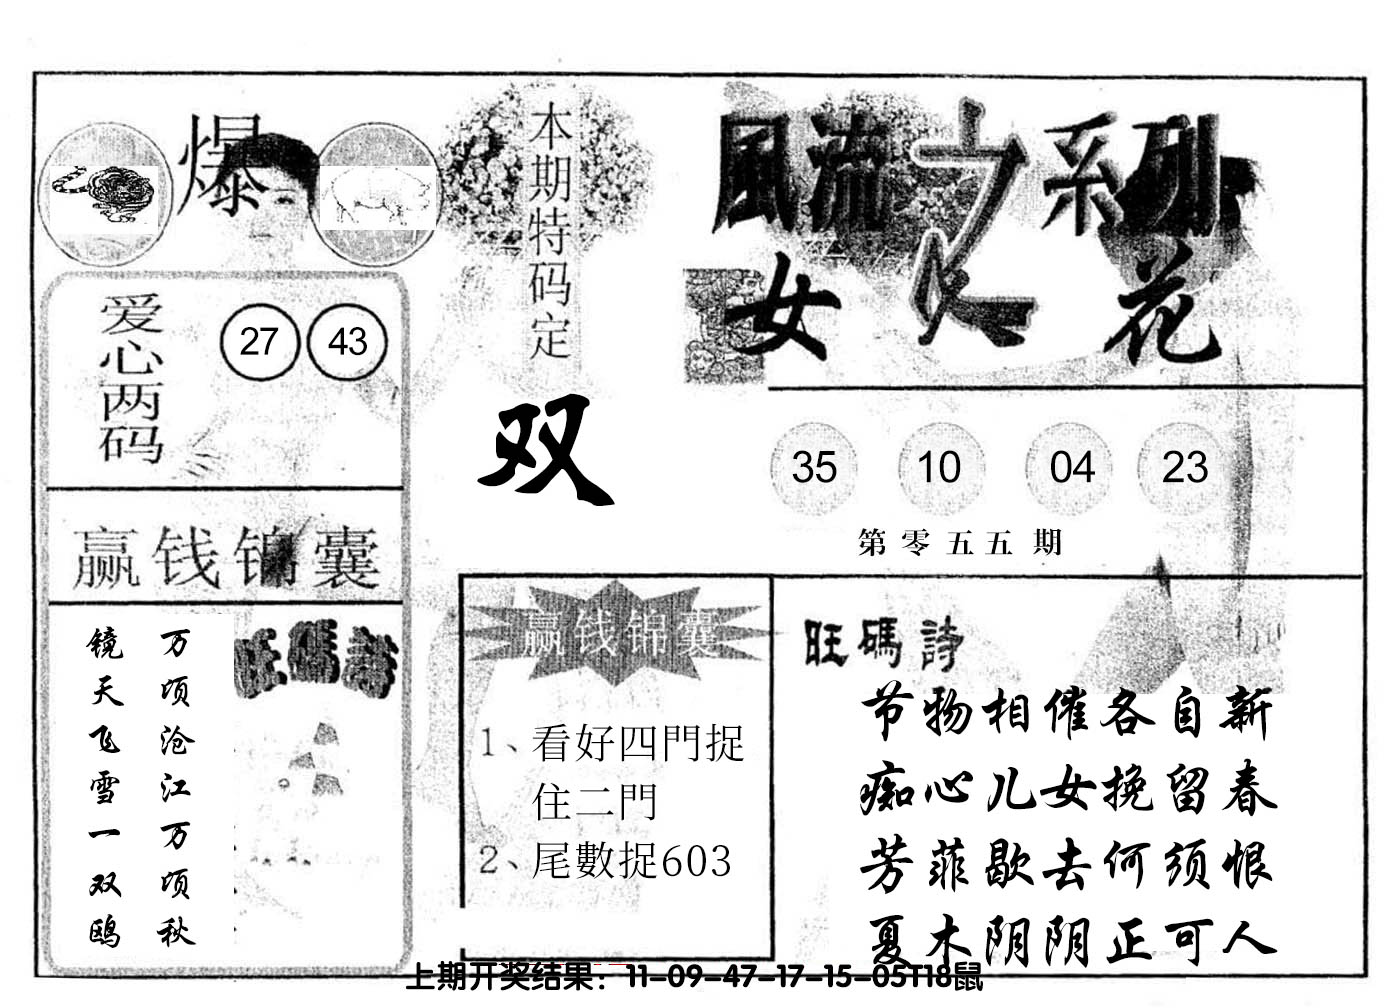 爆
本期特码定
双
風流之系列
女人花
爱心两码
27 43
35 10 04 23
第零五五期
赢钱锦囊
万顷沧江万顷秋
镜天飞雪一双鸥
旺碼詩
赢钱锦囊
1、看好四門捉
住二門
2、尾數捉603
旺碼詩
节物相催各自新
痴心儿女挽留春
芳菲歇去何须恨
夏木阴阴正可人
上期开奖结果：11-09-47-17-15-05T18鼠